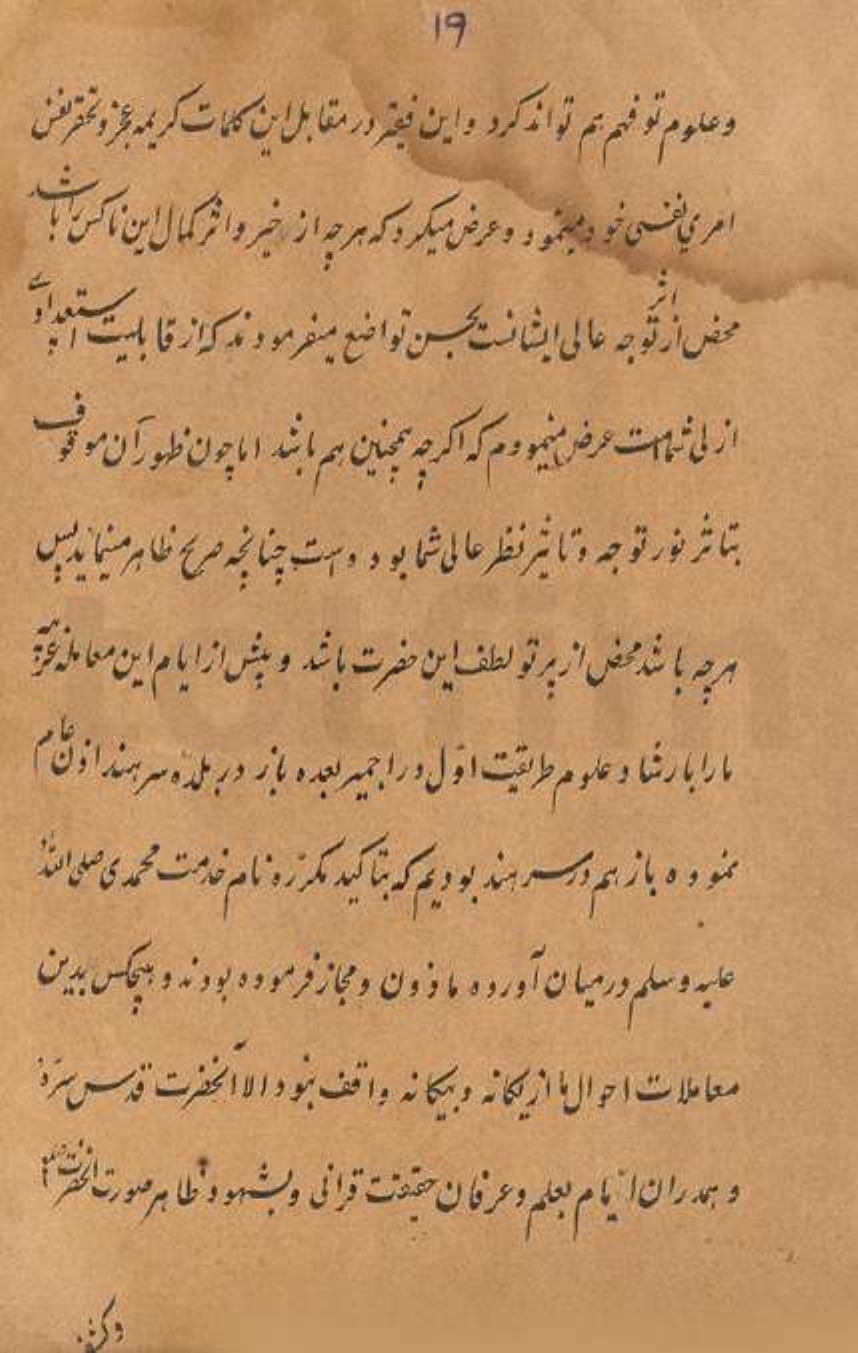 ۱۹
وعلوم تو فهم هم تواند کرد واین فقیر در مقابل این کلمات کریمه عجز وتحقر نفس
امری نفسی خود مینمود و عرض میکرد که هرچه از خیر واثر کمال این ناکس را باشد
محض از اثر توجه عالی ایشانست بحسن تواضع میفرمودند که از قابلیت استعدادے
ازلی شماست عرض مینمودم که اکرچه همچنین هم باشد اما چون ظهور آن موقوف
بتاثر نور توجه وتاثیر نظر عالی شما بود وهست چنانچه صریح ظاهر مینماید پس
هرچه باشد محض از پرتو لطف این حضرت باشد و پیش از ایام این معامله
مارا بارشاد علوم طریقت اوّل در اجمیر بعده باز در بلده سرهند اذن عام
نموده باز هم در سرهند بودیم که بتاکید مکرّره نام خدمت محمدی صلی الله
علیه وسلم درمیان آورده ماذون ومجاز فرموده بودند وهیچکس بدین
معاملات احوال ما از یکانه وبیکانه واقف نبود الا آنحضرت قدس سرّه
و همدران ایّام بعلم وعرفان حقیقت قرانی وبشهود ظاهر صورت آنحضرت